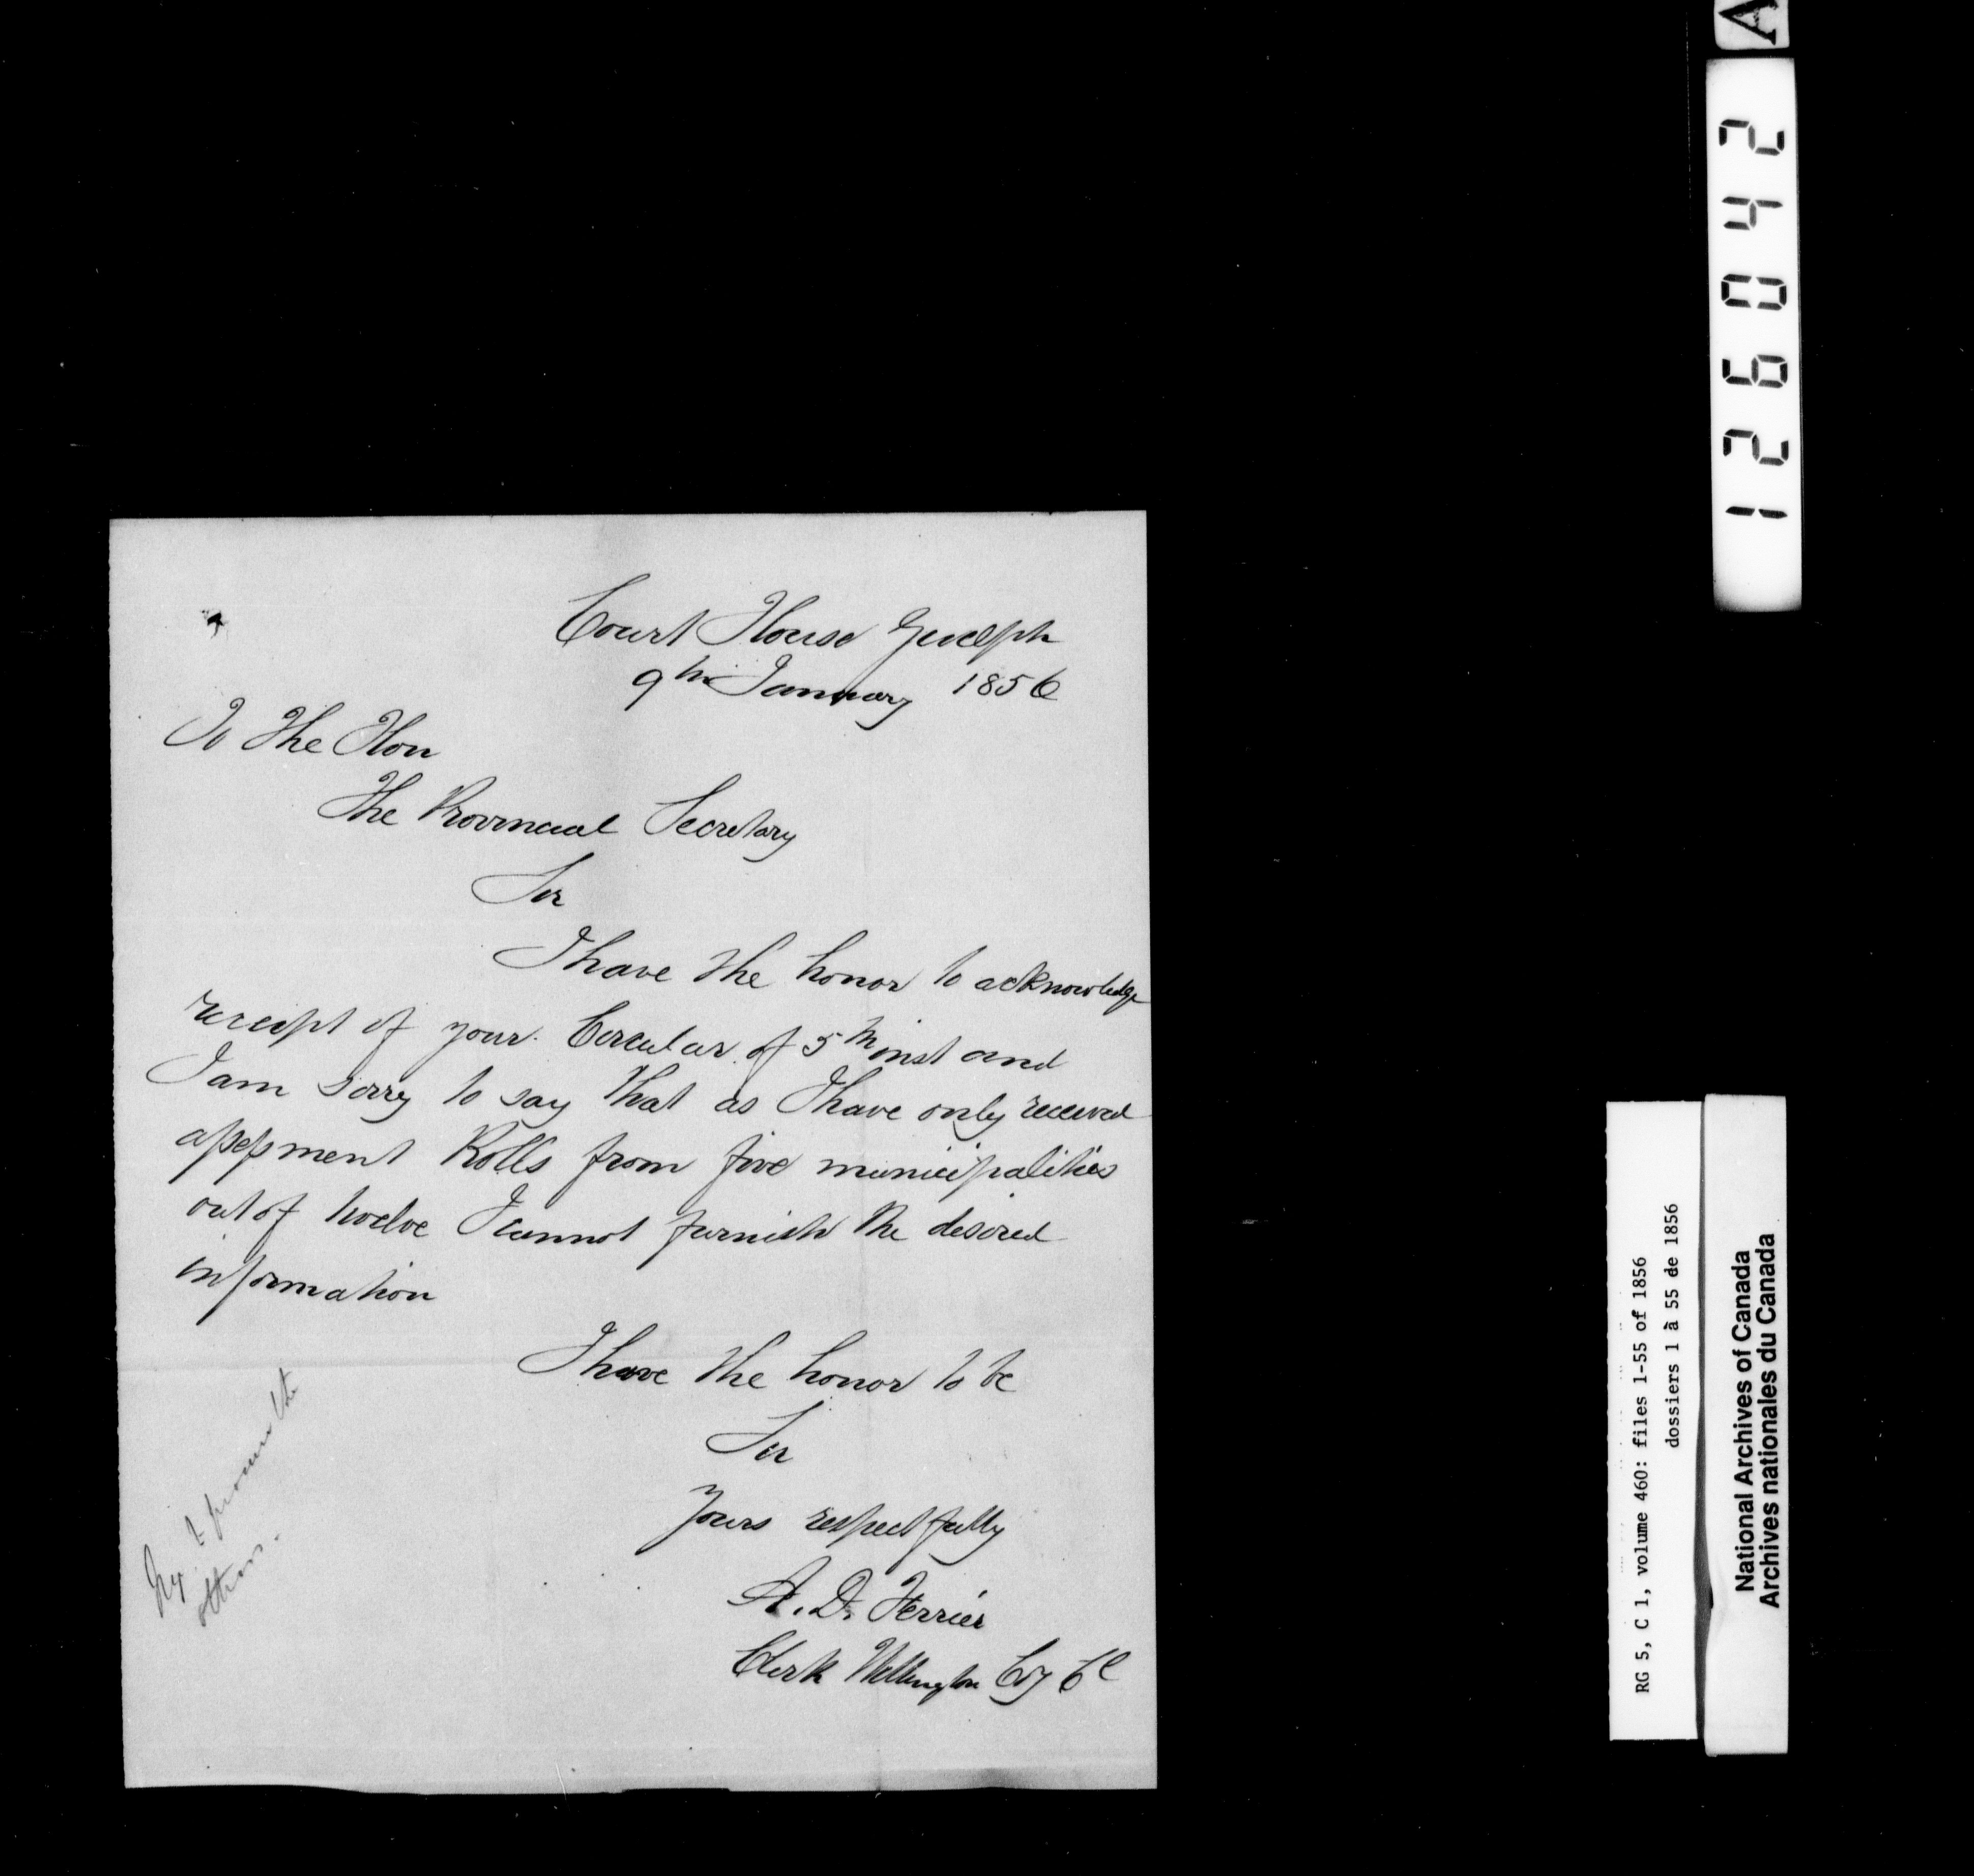 Court House Guelph
9th January 1856
To The Hon
The Provincial Secretary
Sir
I have the honor to acknowledge
receipt of your Circular of 5th inst and
I am sorry to say that as I have only received
assessment Rolls from five municipalities
out of twelve I cannot furnish the desired
information
I have the honor to be
Sir
Yours respectfully
A. D. Ferrier
Clerk Wellington Cy Cl
to procure the
others.
A
126042
RG 5, C 1, volume 460: files 1-55 of 1856
dossiers 1 à 55 de 1856
National Archives of Canada
Archives nationales du Canada